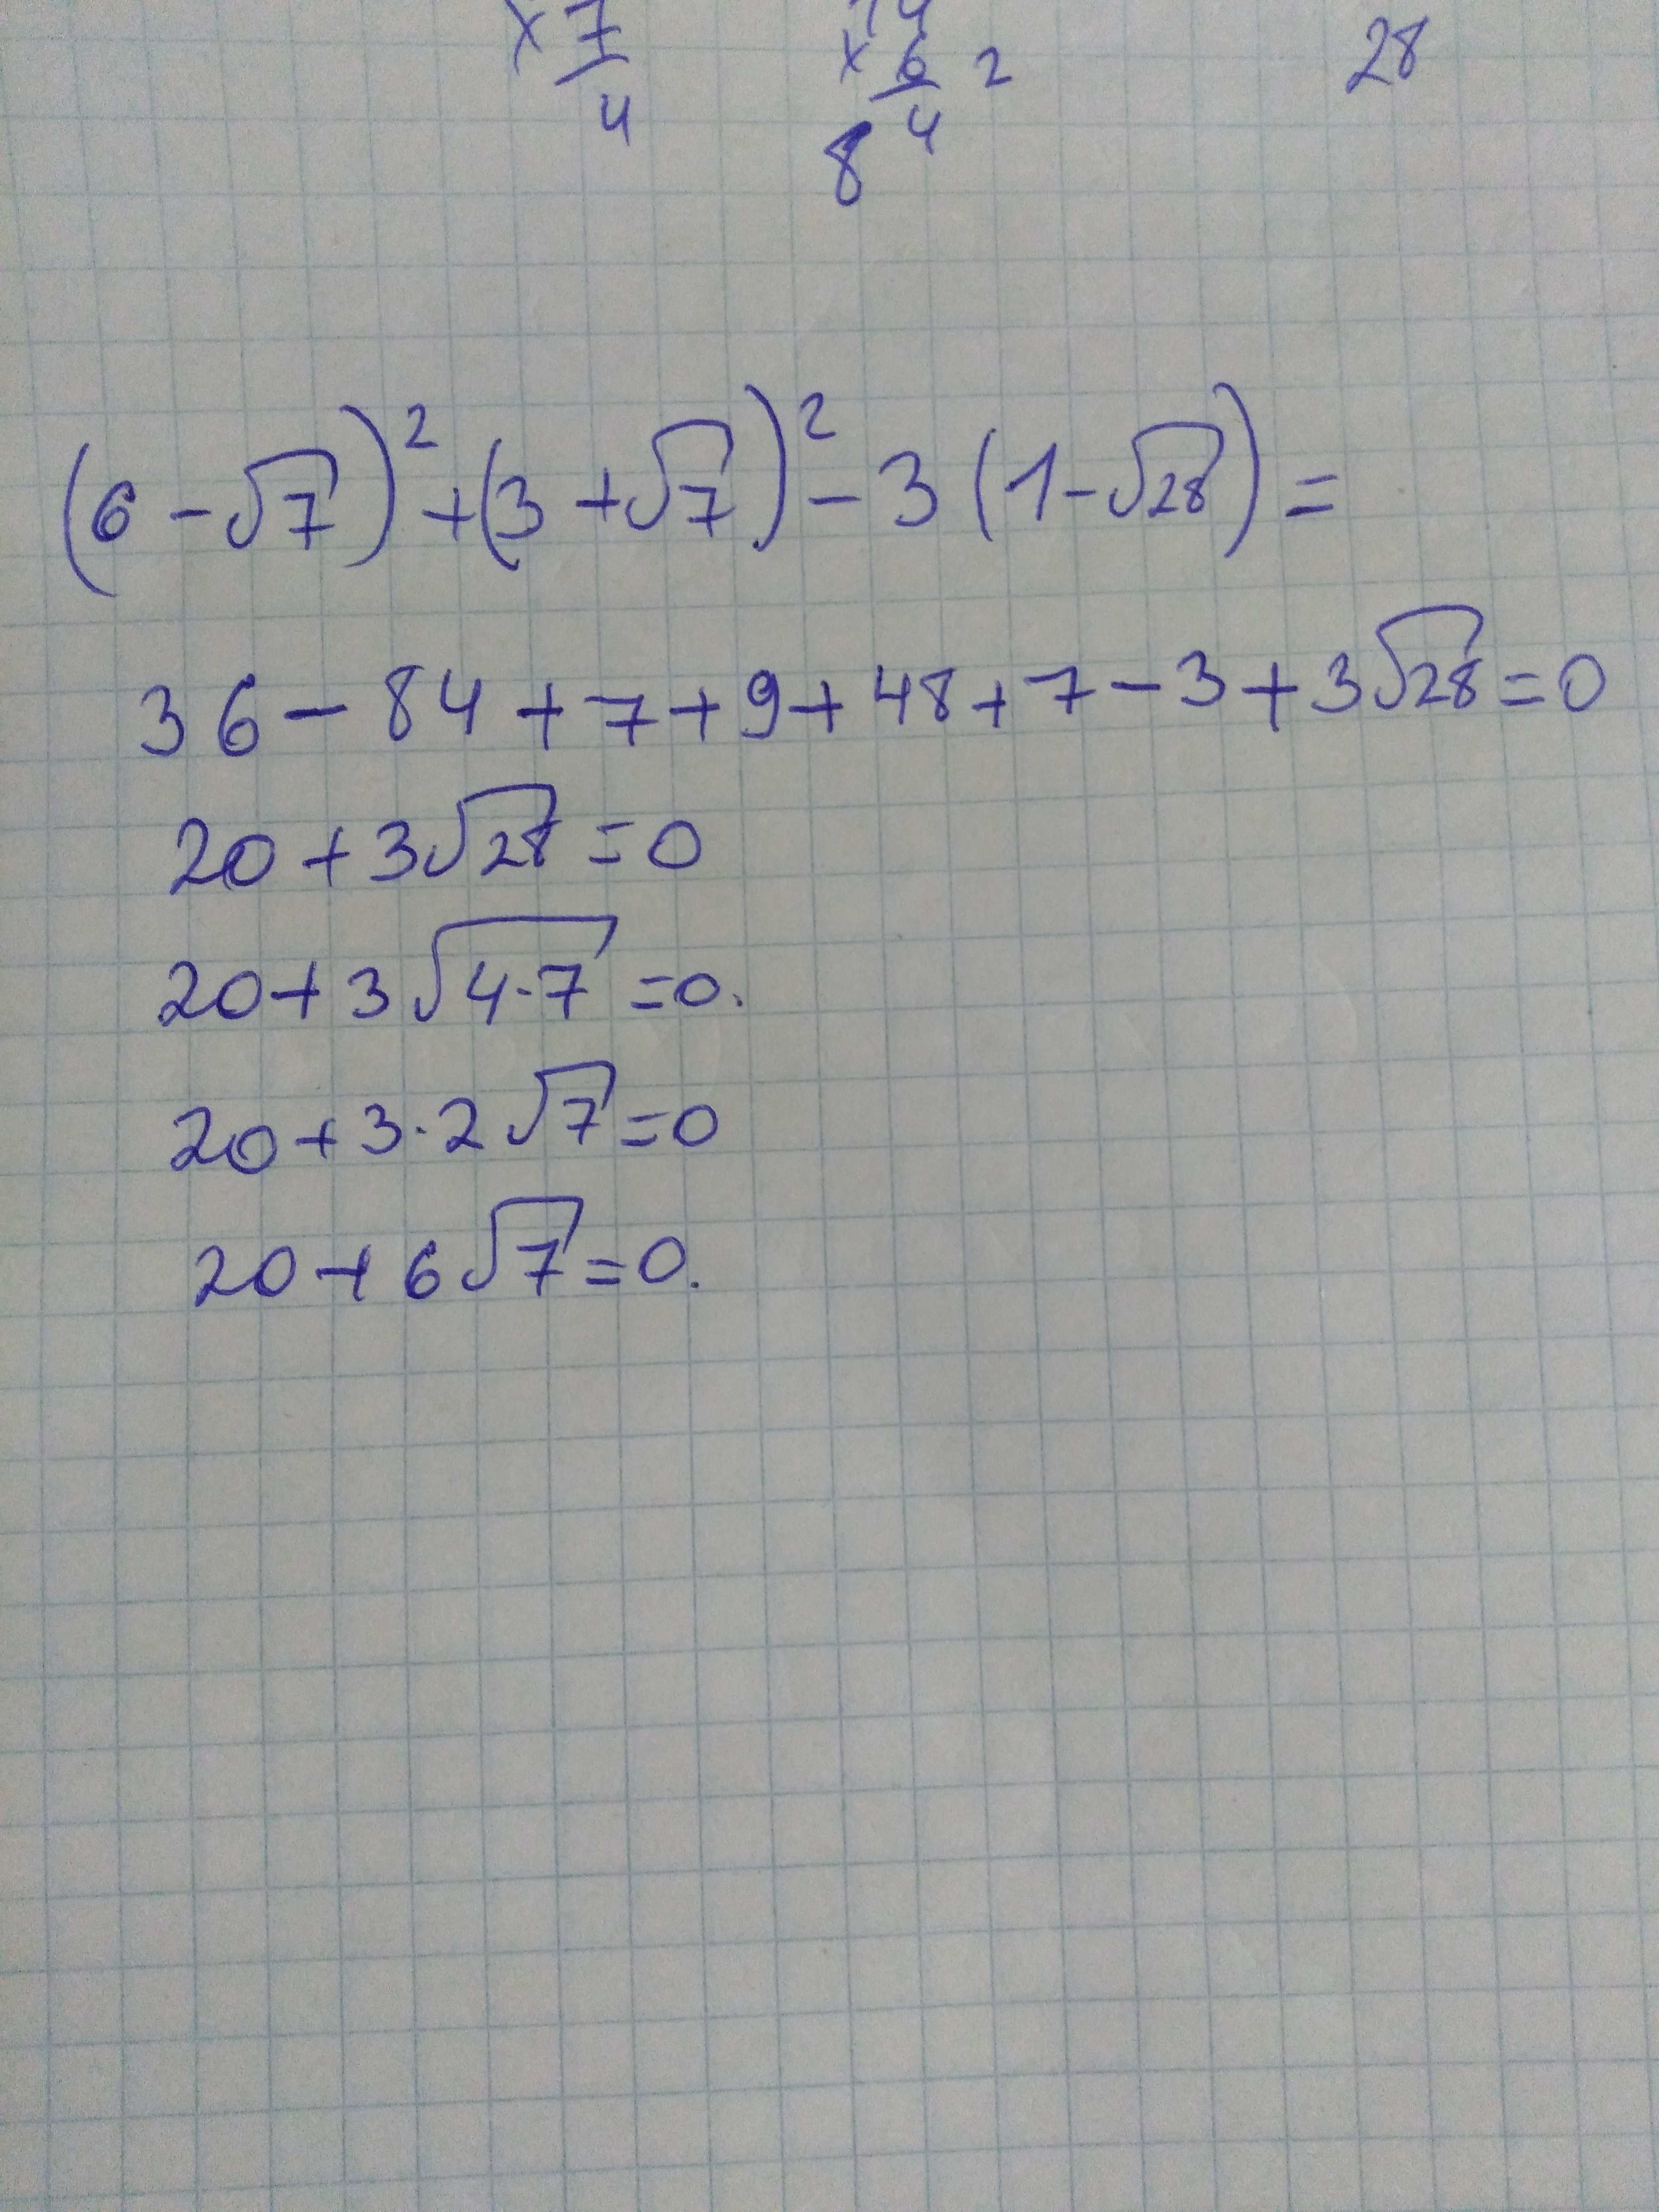 × 7
4
14
× 6 2
84
28
(6 - √7)² + (3 + √7)² - 3(1 - √28) =
36 - 84 + 7 + 9 + 48 + 7 - 3 + 3√28 = 0
20 + 3√28 = 0
20 + 3√4·7 = 0.
20 + 3·2√7 = 0
20 + 6√7 = 0.